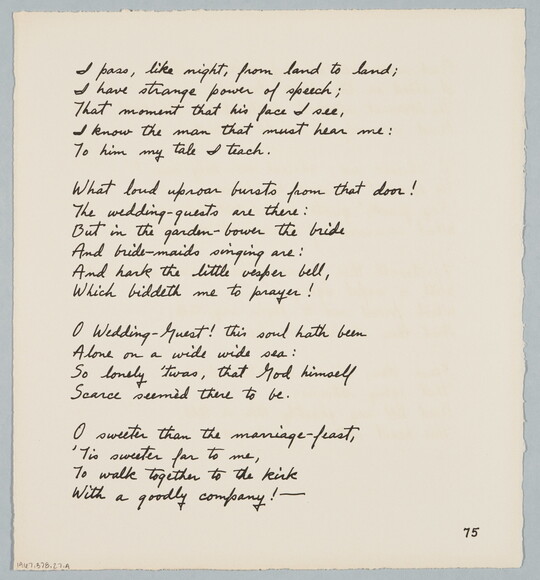 I pass, like night, from land to land;
I have strange power of speech;
That moment that his face I see,
I know the man that must hear me:
To him my tale I teach.
What loud uproar bursts from that door!
The wedding-guests are there:
But in the garden-bower the bride
And bride-maids singing are:
And hark the little vesper bell,
Which biddeth me to prayer!
O Wedding-Guest! this soul hath been
Alone on a wide wide sea:
So lonely 'twas, that God himself
Scarce seemèd there to be.
O sweeter than the marriage-feast,
'Tis sweeter far to me,
To walk together to the kirk
With a goodly company!—
75
1947.578.27.A